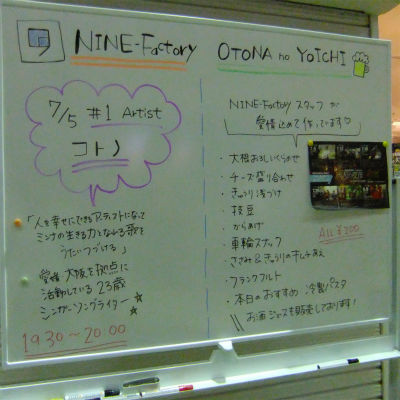 NINE-Factory
7/5 #1 Artist
コトノ
「人を幸せにできるアーティストになって
ミンナの生きる力となれる歌を
うたいつづける」
愛媛 大阪を拠点に
活動している23歳
シンガーソングライター☆
19:30~20:00
OTONA no YOICHI
NINE-Factory スタッフが
愛情込めて作っています♡
・大根おろしいくらのせ
・チーズ盛り合わせ
・きゅうり浅づけ
・枝豆
・からあげ
・車輪スナック
・ささみ&きゅうりの
・フランクフルト
・本日のおすすめ 冷製パスタ
ALL ¥200
\\ お酒 ジュースも販売しております!